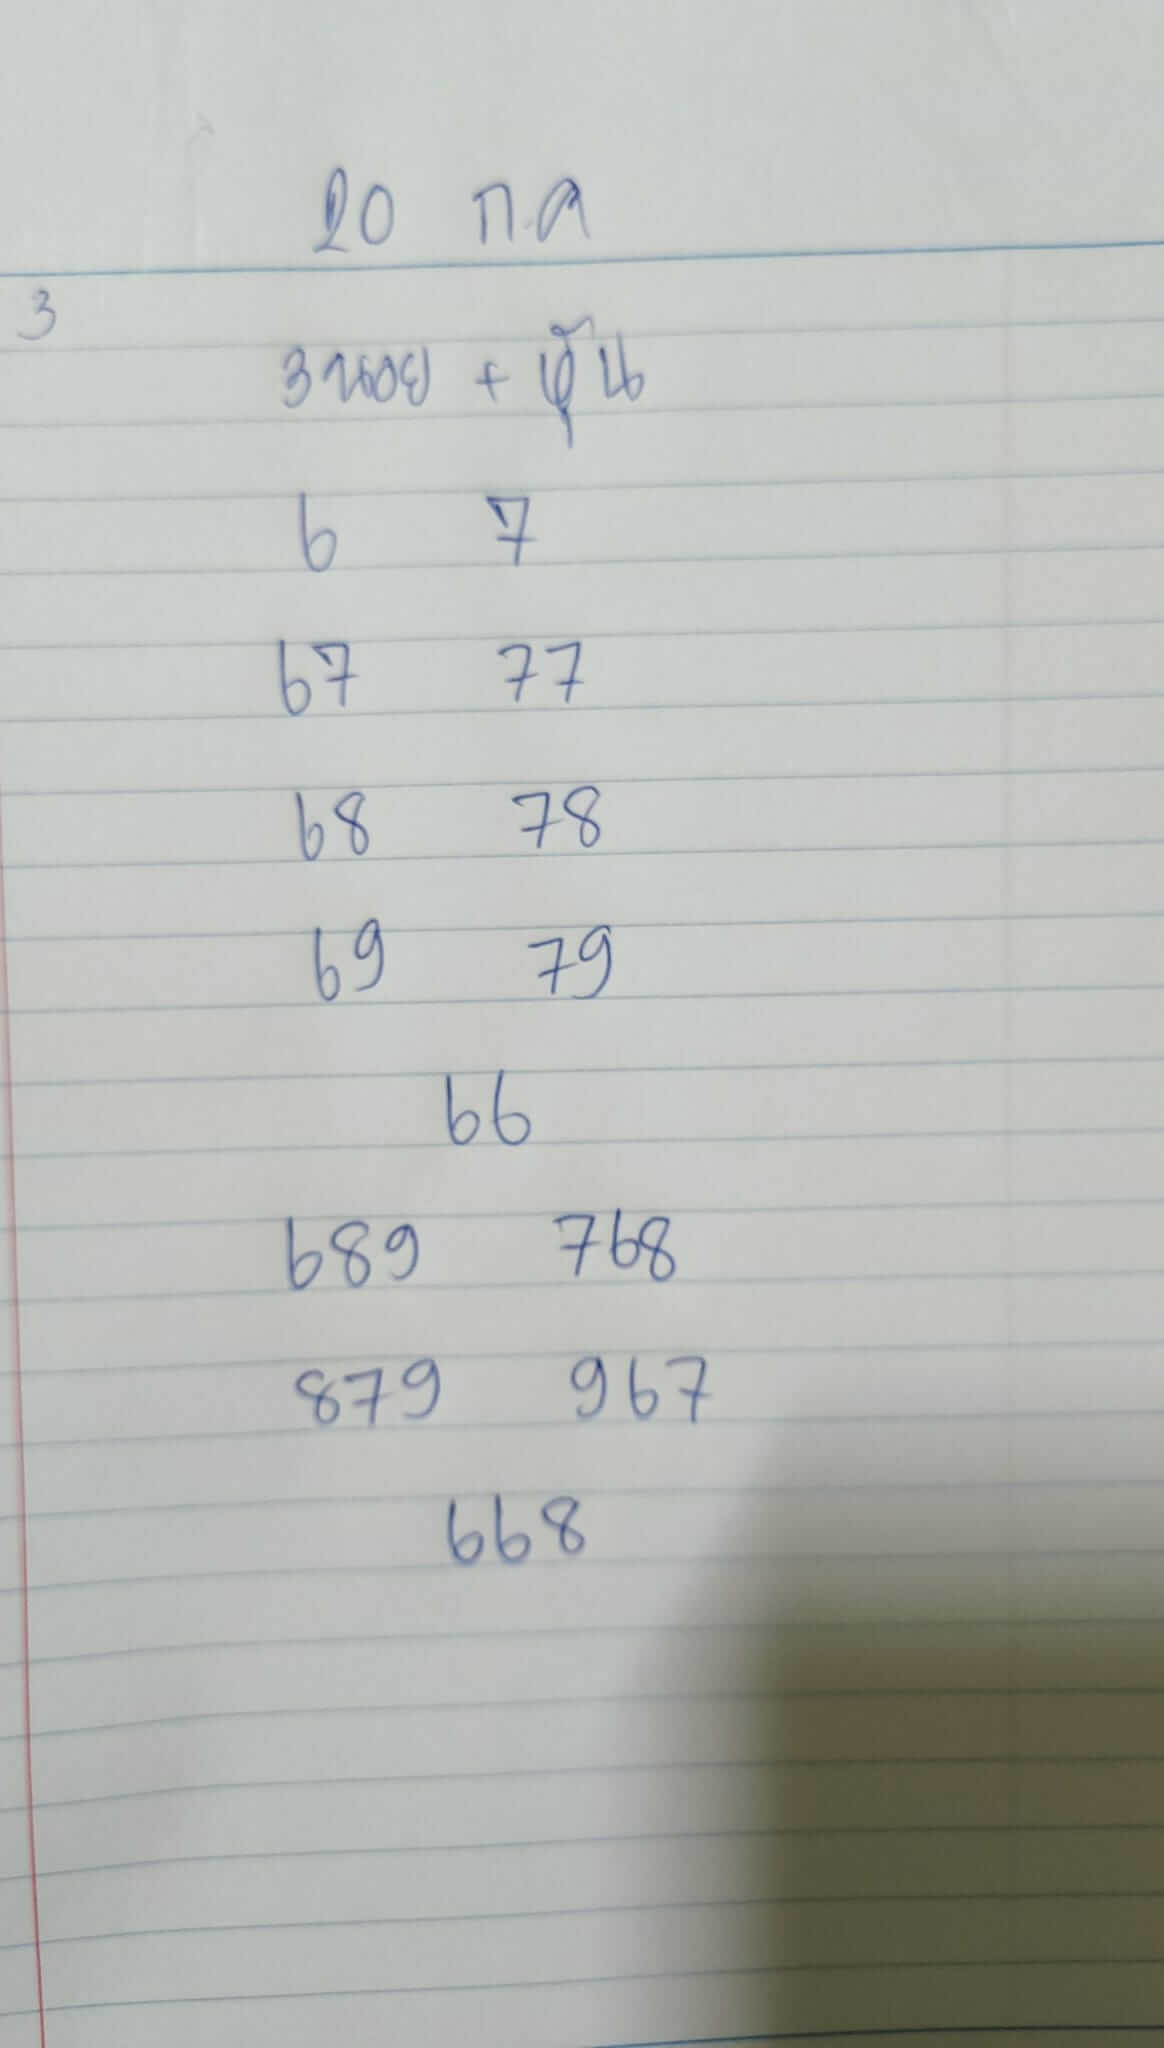 20 ก.ค
3
3นอย + หุ้น
6 7
67 77
68 78
69 79
66
689 768
879 967
668